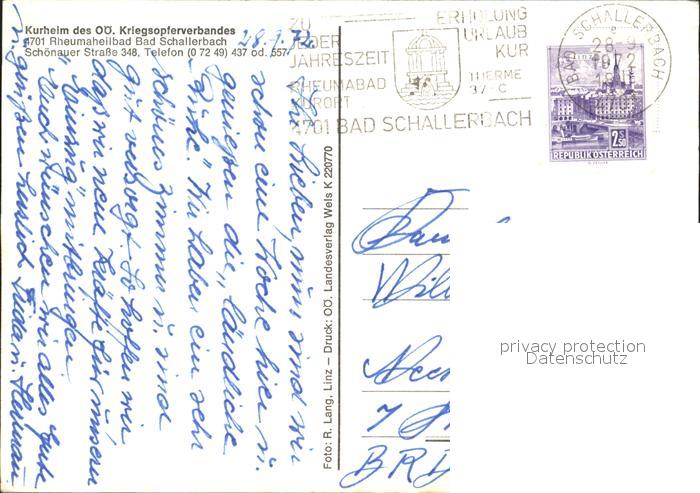 Kurheim des OÖ. Kriegsopferverbandes
4701 Rheumaheilbad Bad Schallerbach
Schönauer Straße 348, Telefon (0 72 49) 437 od. 557
28.9.72
Ihr Lieben, nun sind wir
schon eine Woche hier u.
genießen die „ländliche
Ruhe". Wir haben ein sehr
schönes Zimmer u. sind
gut versorgt. So hoffen wir
daß wir neue Kräfte für unsern
mitbringen
Euch wünschen wir alles Gute
u. grüßen herzlich Hermann
Foto: R. Lang, Linz – Druck: OÖ. Landesverlag Wels K 220770
ZU
JEDER
JAHRESZEIT
RHEUMABAD
KURORT
ERHOLUNG
URLAUB
KUR
THERME
37°C
4701 BAD SCHALLERBACH
BAD SCHALLERBACH
28.9.
1972
LINZ
2.50
REPUBLIK ÖSTERREICH
BRD
privacy protection
Datenschutz